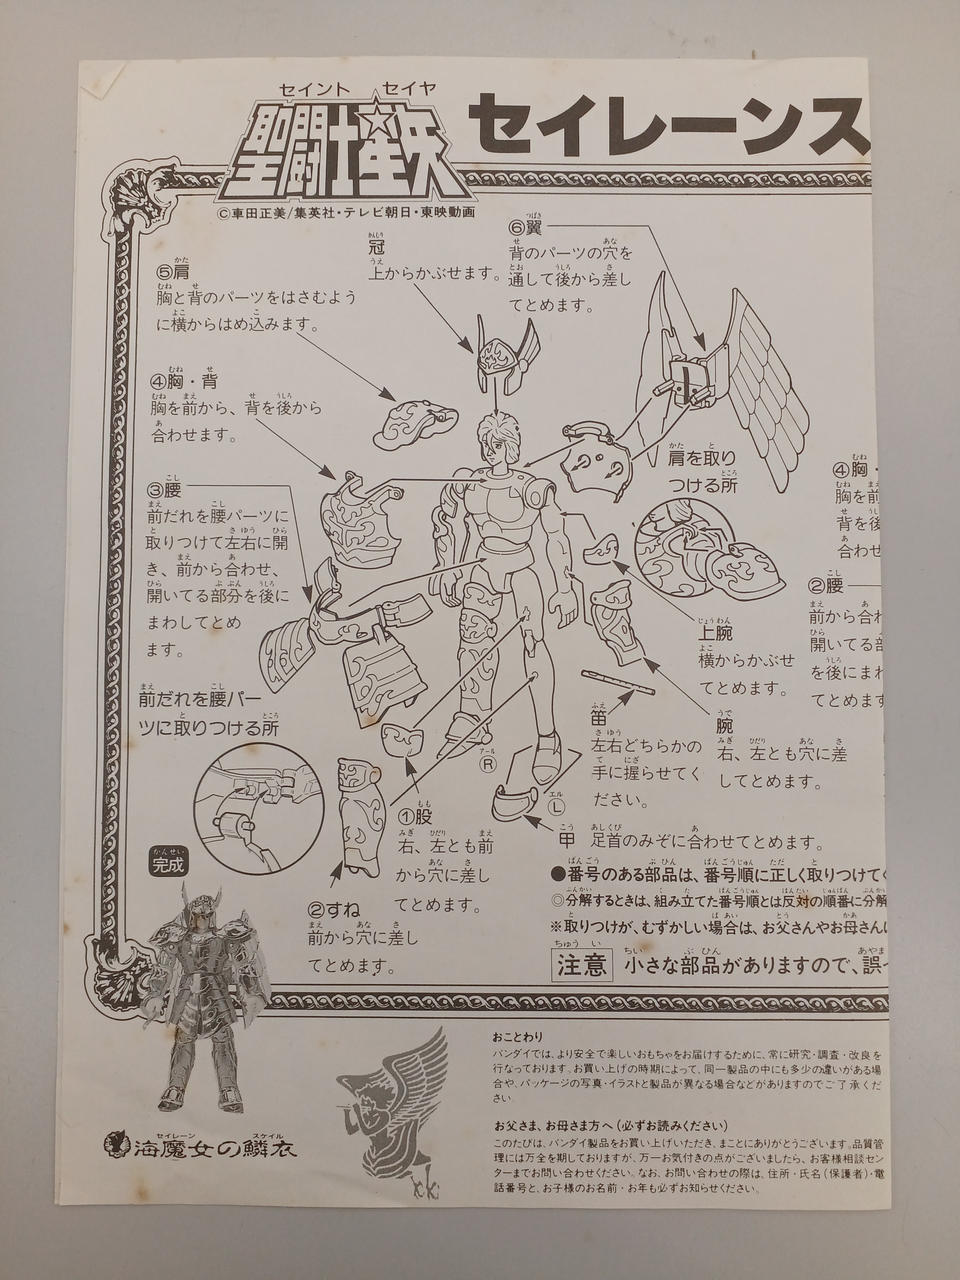 セイント セイヤ
聖闘士星矢
セイレーンス
©車田正美/集英社・テレビ朝日・東映動画
⑥翼
背のパーツの穴を
通して後から差し
てとめます。
冠
上からかぶせます。
⑤肩
胸と背のパーツをはさむよう
に横からはめ込みます。
④胸・背
胸を前から、背を後から
合わせます。
③腰
前だれを腰パーツに
取りつけて左右に開
き、前から合わせ、
開いてる部分を後に
まわしてとめ
ます。
前だれを腰パー
ツに取りつける所
肩を取り
つける所
④胸・
胸を前
背を後
合わせ
②腰
前から合わ
開いてる部
を後にまわ
てとめます
上腕
横からかぶせ
てとめます。
笛
左右どちらかの
手に握らせてく
ださい。
腕
右、左とも穴に差
してとめます。
アール
Ⓡ
エル
Ⓛ
甲 足首のみぞに合わせてとめます。
①股
右、左とも前
から穴に差し
てとめます。
②すね
前から穴に差し
てとめます。
完成
●番号のある部品は、番号順に正しく取りつけて
◎分解するときは、組み立てた番号順とは反対の順番に分解
※取りつけが、むずかしい場合は、お父さんやお母さんに
注意 小さな部品がありますので、誤っ
セイレーン スケイル
海魔女の鱗衣
おことわり
バンダイでは、より安全で楽しいおもちゃをお届けするために、常に研究・調査・改良を
行なっております。お買い上げの時期によって、同一製品の中にも多少の違いがある場
合や、パッケージの写真・イラストと製品が異なる場合などがありますのでご了承くだ
さい。
お父さま、お母さま方へ(必ずお読みください)
このたびは、バンダイ製品をお買い上げいただき、まことにありがとうございます。品質管
理には万全を期しておりますが、万一お気付きの点がございましたら、お客様相談セン
ターまでお問い合わせください。なお、お問い合わせの際は、住所・氏名(保護者)・電
話番号と、お子様のお名前・お年も必ずお知らせください。